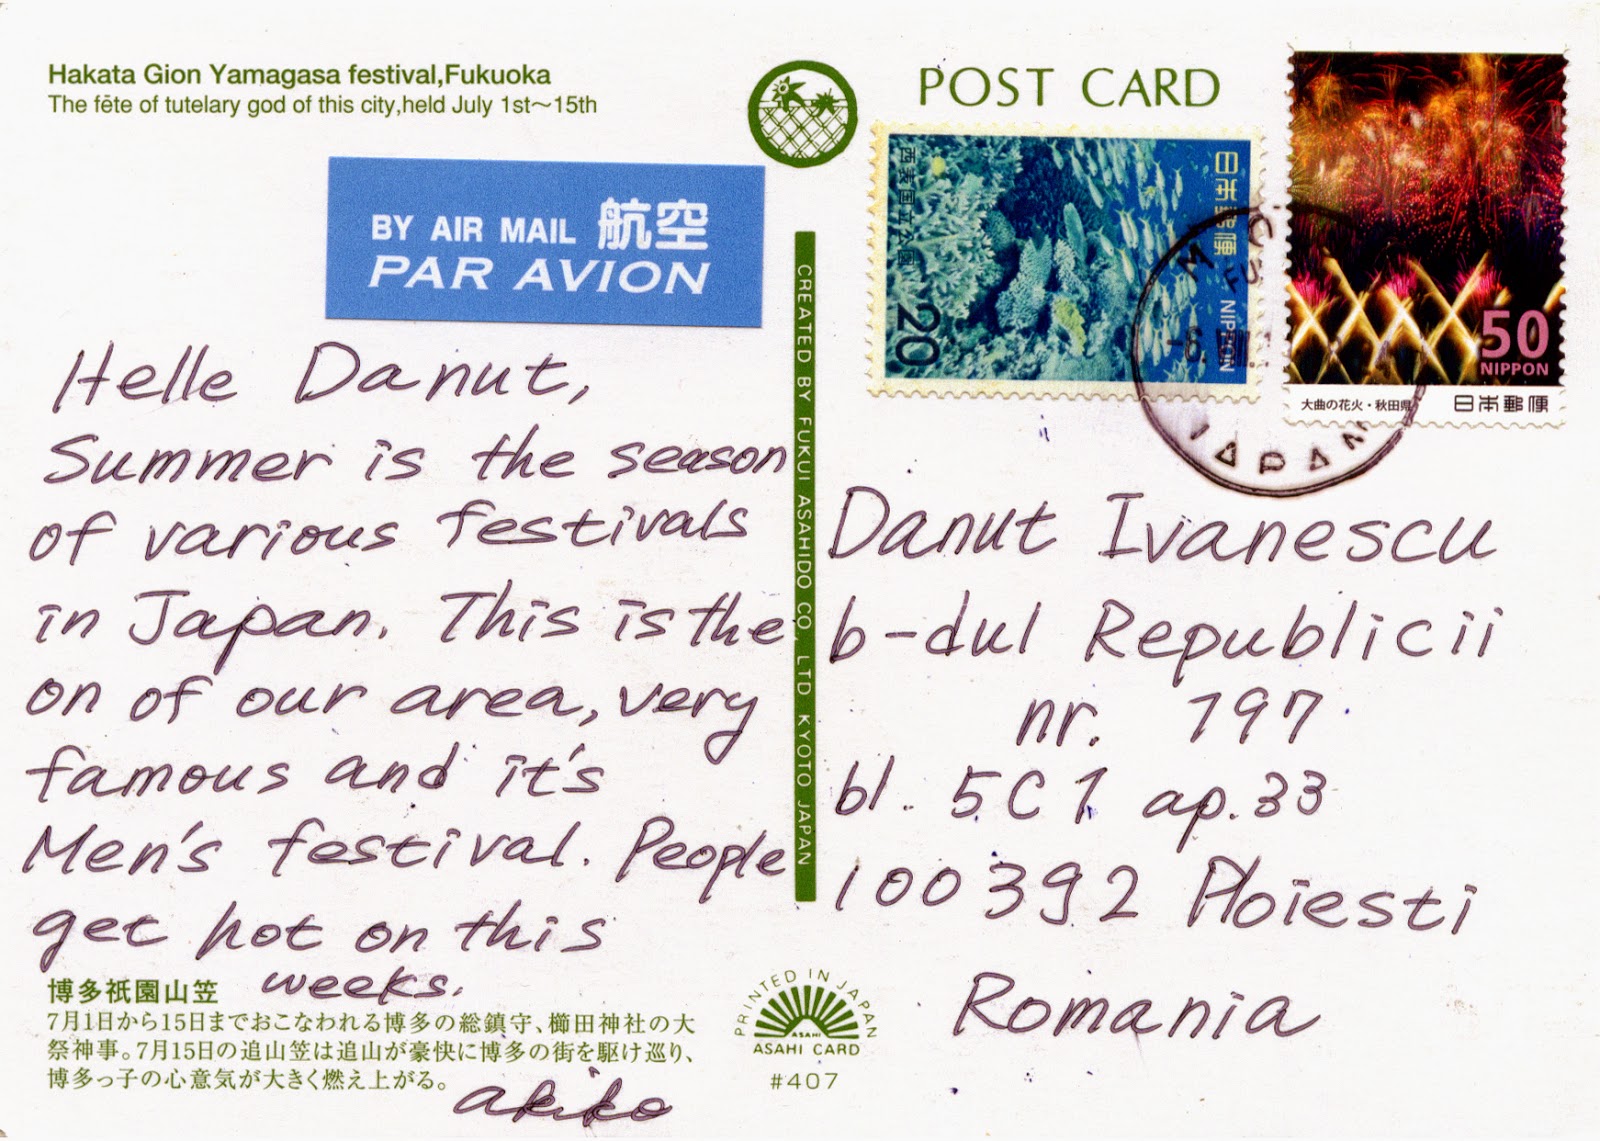 Hakata Gion Yamagasa festival,Fukuoka
The fête of tutelary god of this city,held July 1st〜15th
BY AIR MAIL 航空
PAR AVION
Helle Danut,
Summer is the season
of various festivals
in Japan. This is the
on of our area, very
famous and it's
Men's festival. People
get hot on this
weeks.
博多祇園山笠
7月1日から15日までおこなわれる博多の総鎮守、櫛田神社の大
祭神事。7月15日の追山笠は追山が豪快に博多の街を駆け巡り、
博多っ子の心意気が大きく燃え上がる。
akiko
CREATED BY FUKUI ASAHIDO CO., LTD KYOTO JAPAN
PRINTED IN JAPAN
ASAHI
ASAHI CARD
#407
POST CARD
日本郵便 NIPPON
西表国立公園
20
50
NIPPON
大曲の花火・秋田県
日本郵便
JAPAN
Danut Ivanescu
b-dul Republicii
nr. 197
bl. 5C1 ap.33
100392 Ploiesti
Romania